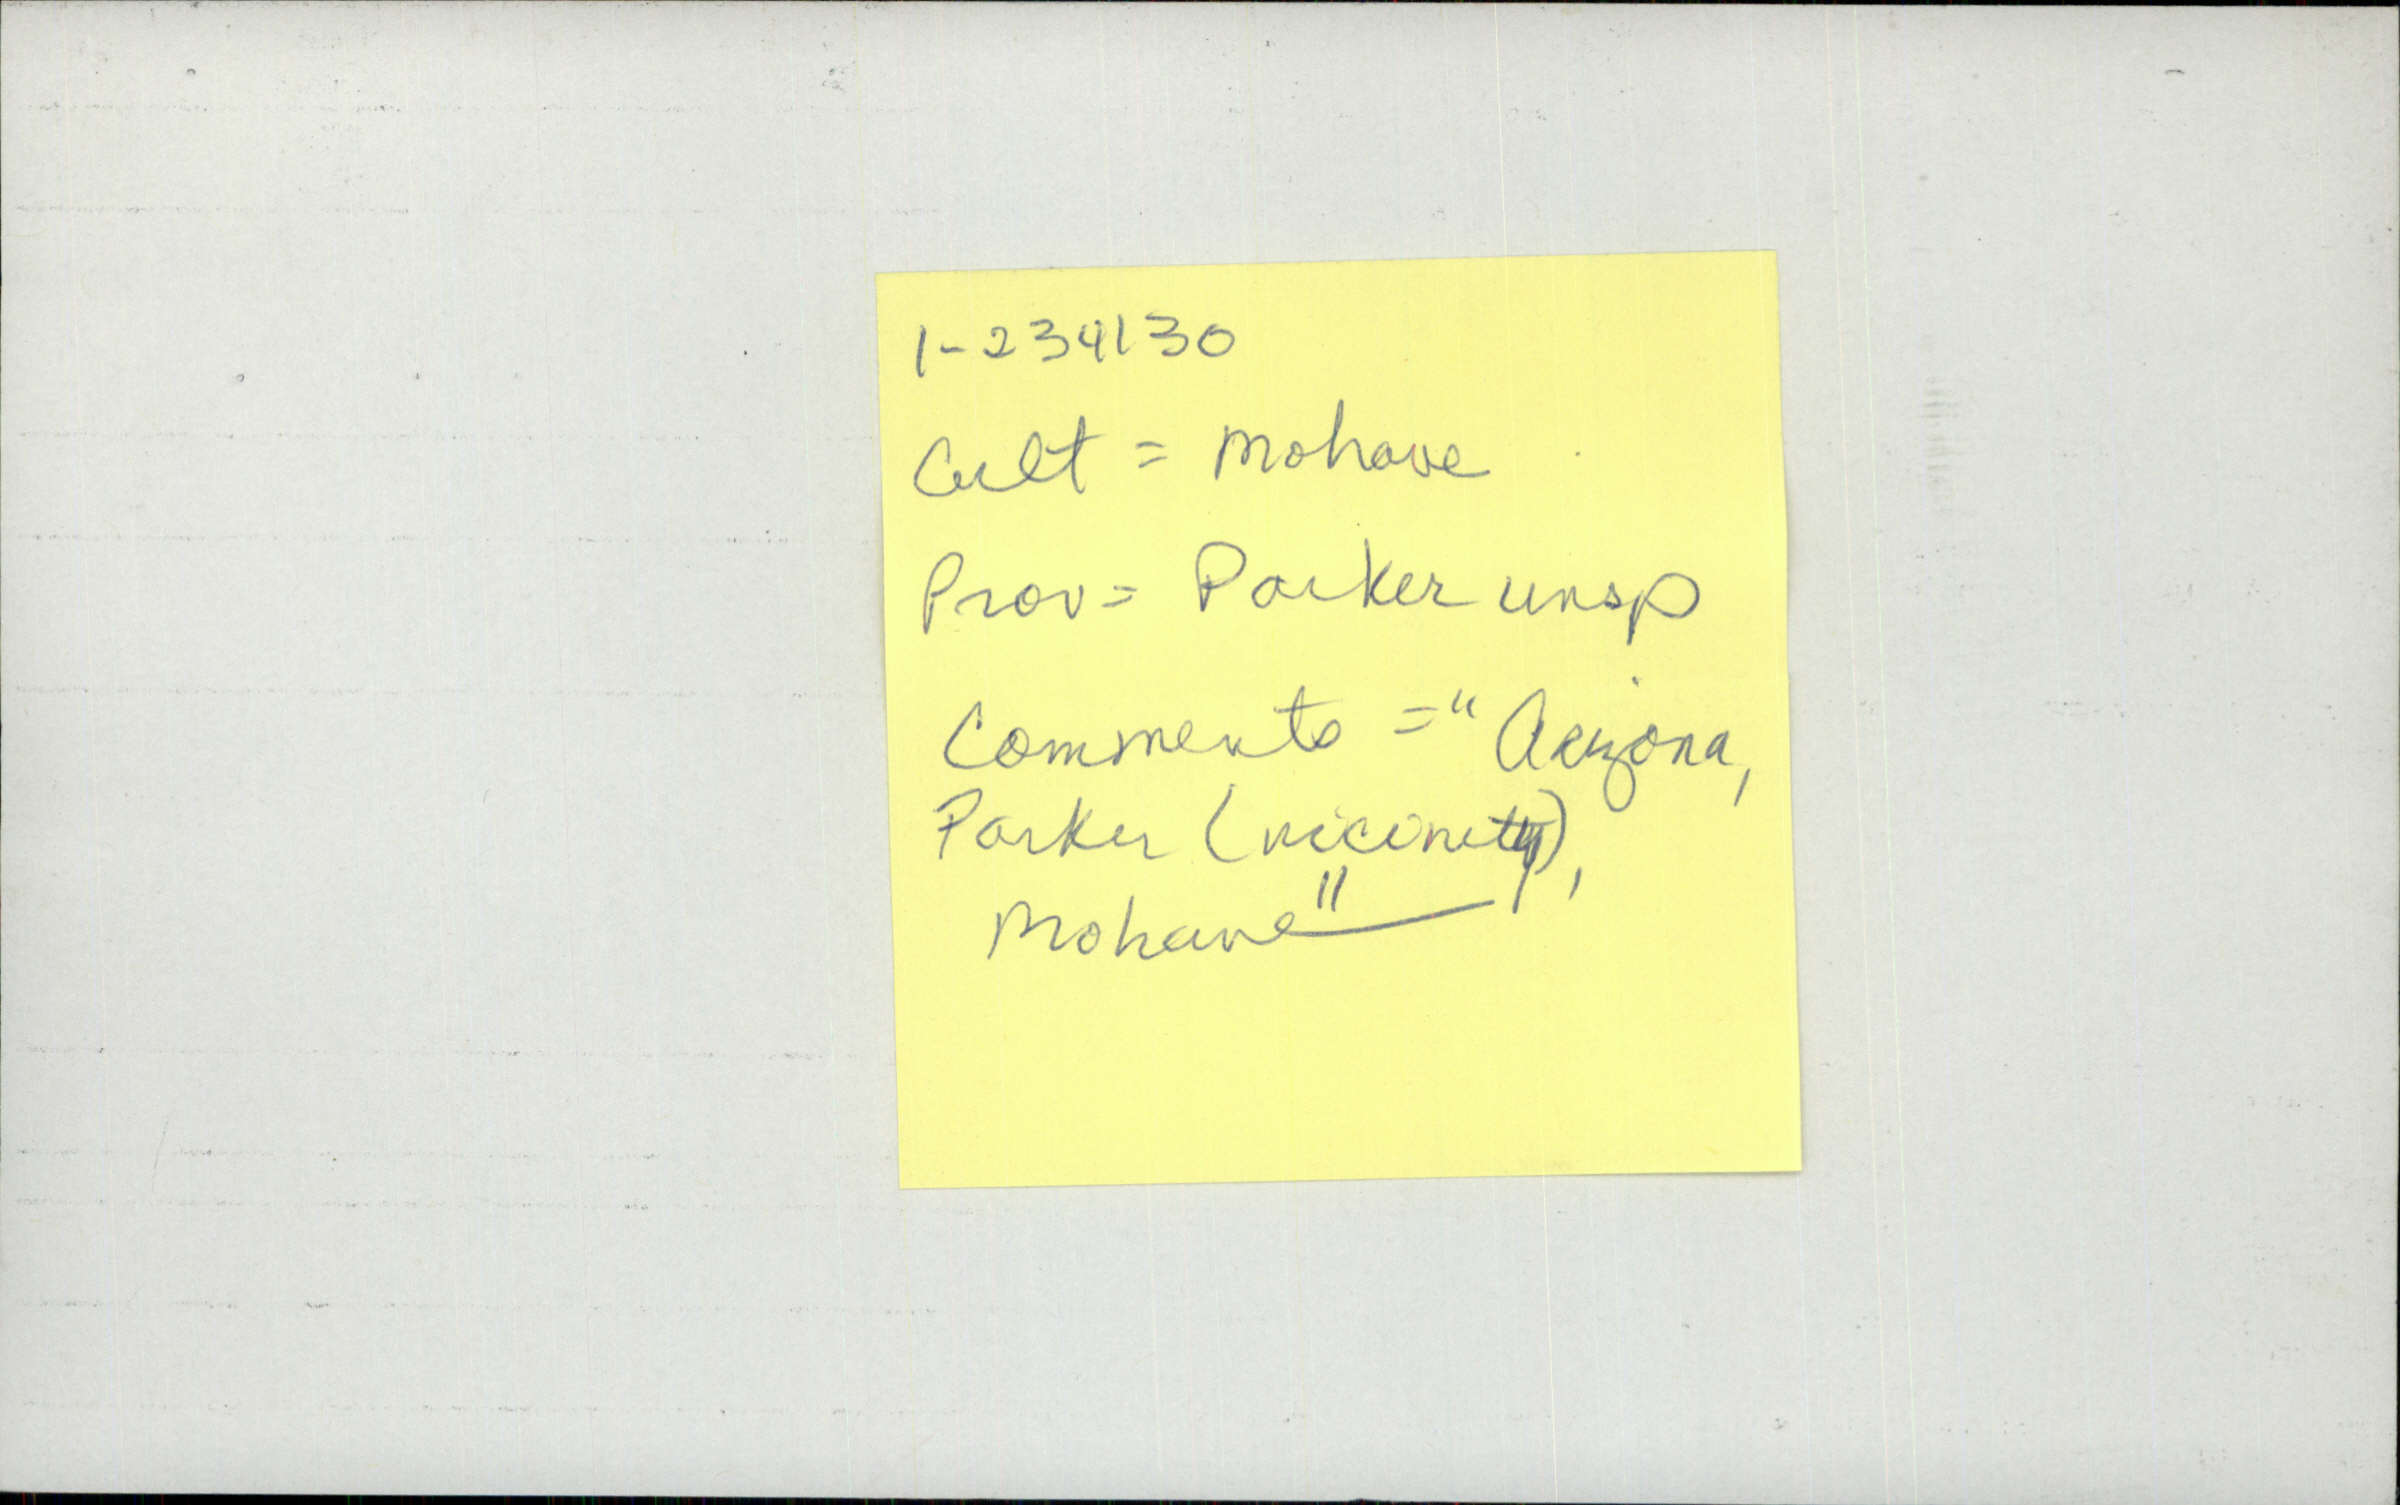 1-234130
Cult = Mohave
Prov = Parker unsp
Comments = "Arizona,
Parker (vicinity),
Mohave"